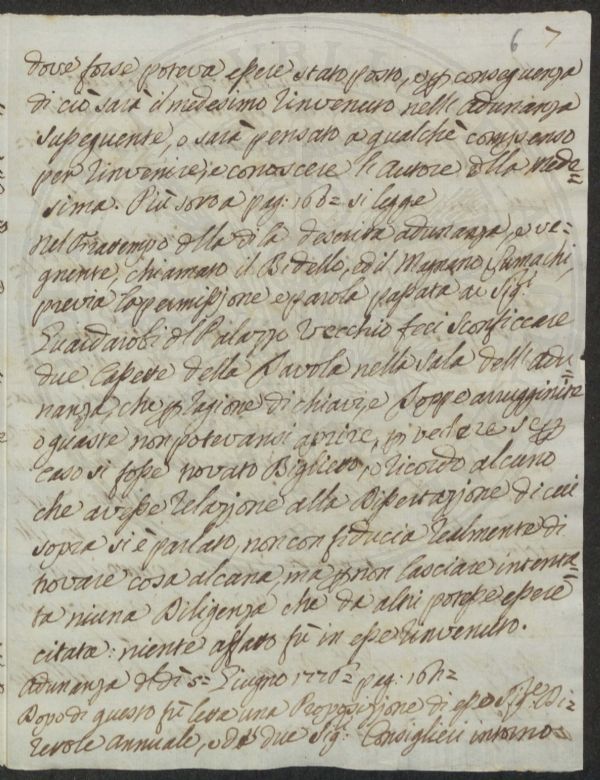 6 7
dove forse poteva essere stato posto, e p conseguenza
di ciò sarà il medesimo rinvenuto nell'adunanza
susseguente, o sarà pensato a qualche compenso
per rinvenire, e conoscere l'Autore della mede=
sima. Più sotto a pag: 160= si legge
Nel Frattempo della di là descritta adunanza, e ve=
gnente, chiamato il Bidello, ed il Magnano
previa la permissione e parola passata ai Sigri
Guardarobi del Palazzo Vecchio feci sconficcare
due Cassette della Tavola nella Sala dell'Adu=
nanza, che p ragione di chiavi, e Toppe arrugginite
o guaste non potevansi aprire, p vedere se p
caso si fosse trovato Biglietto, o ricordo alcuno
che avesse relazione alla Dissertazione di cui
sopra si è parlato, non con fiducia realmente di
trovare cosa alcuna, ma p non lasciare intenta=
ta niuna Diligenza, che da altri potesse essere
citata: niente affatto fù in esse rinvenuto.
Adunanza del dì 5= Giugno 1776= pag: 161=
Dopo di questo fù letta una Proposizione di esso Sige Di=
rettore Annuale, e di due Sigri Consiglieri intorno